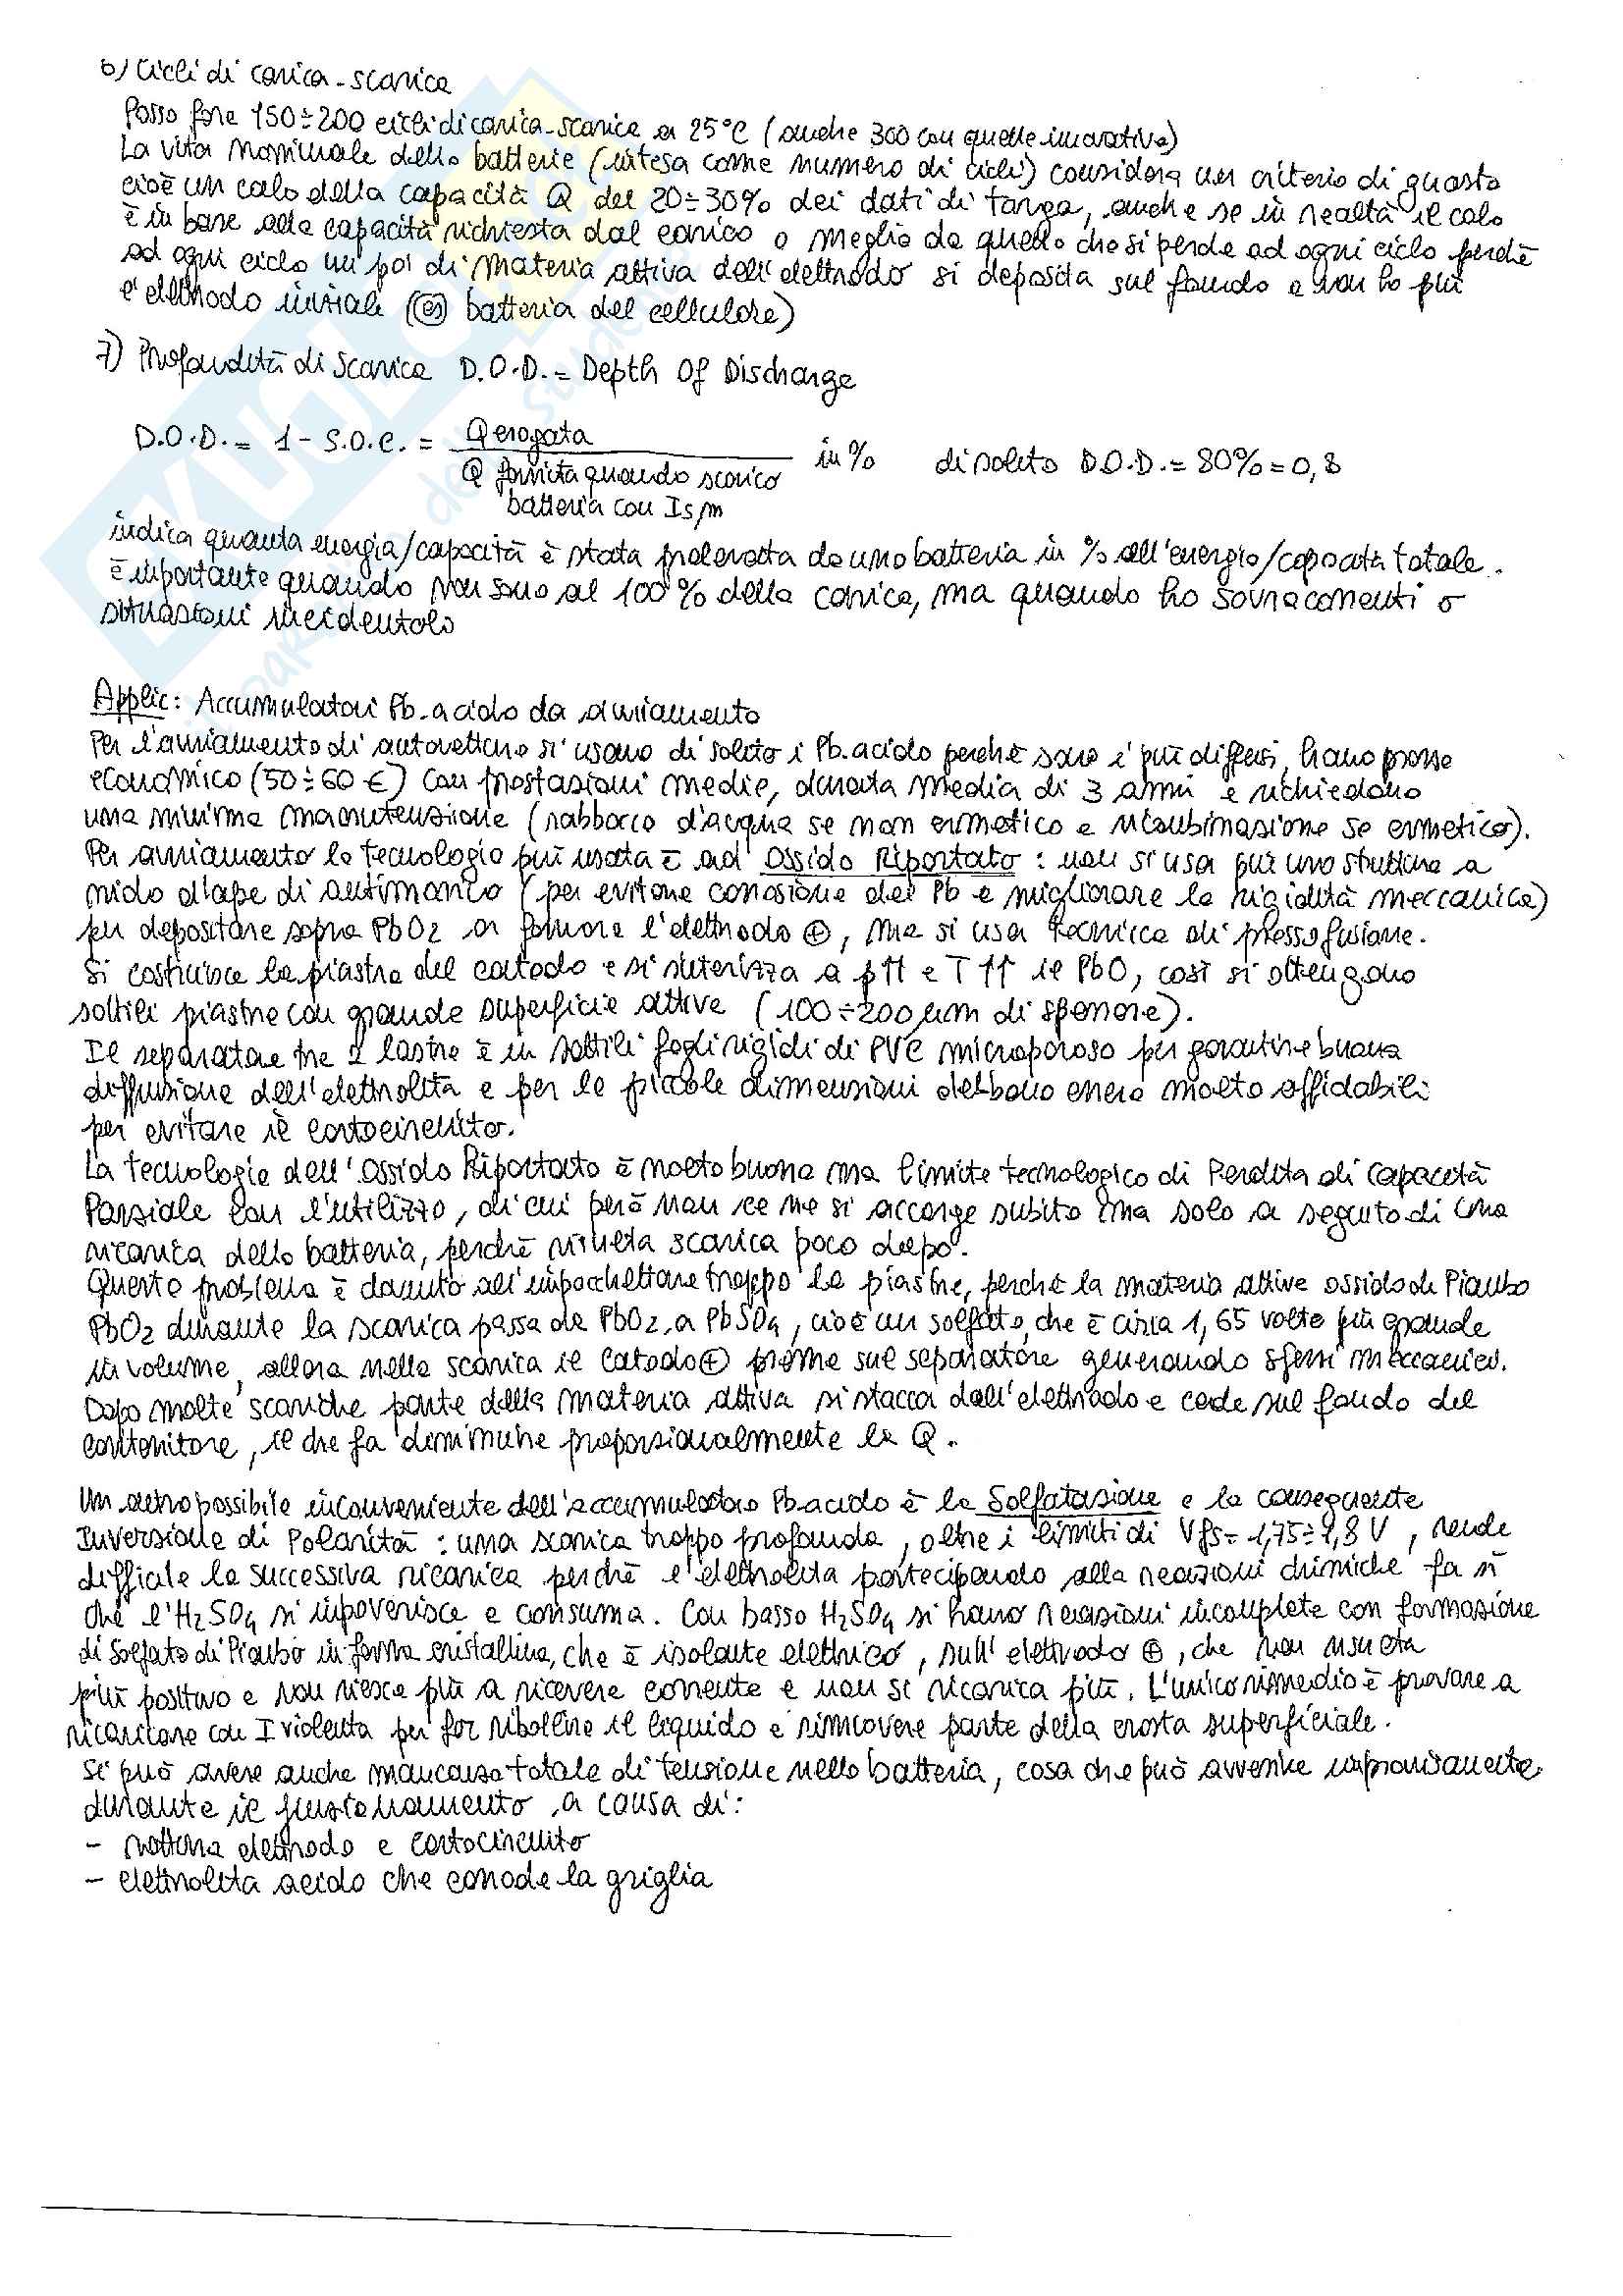 6) Cicli di carica-scarica
Posso fare 150÷200 cicli di carica-scarica a 25°C (anche 300 con quelle innovative)
La vita nominale delle batterie (intesa come numero di cicli) considera un criterio di guasto
cioè un calo della capacità Q del 20÷30% dei dati di targa, anche se in realtà il calo
è in base alla capacità richiesta dal carico o meglio da quello che si perde ad ogni ciclo perchè
ad ogni ciclo un po' di materia attiva dell'elettrodo si deposita sul fondo e non ho più
l'elettrodo iniziale (es batteria del cellulare)
7) Profondità di Scarica D.O.D. = Depth Of Discharge
D.O.D. = 1 - S.O.C. = Q erogata / Q fornita quando scarico batteria con Is,m in % di solito D.O.D. = 80% = 0,8
indica quanta energia/capacità è stata prelevata da una batteria in % all'energia/capacità totale.
è importante quando non sono al 100% della carica, ma quando ho sovracorrenti o
situazioni incidentale
Applic: Accumulatori Pb-acido da avviamento
Per l'avviamento di autovetture si usano di solito i Pb-acido perchè sono i più diffusi, hanno prezzo
economico (50÷60 €) con prestazioni medie, durata media di 3 anni e richiedono
una minima manutenzione (rabbocco d'acqua se non ermetico e ricombinazione se ermetico).
Per avviamento la tecnologia più usata è ad Ossido Riportato: non si usa più una struttura a
nido d'ape di antimonio (per evitare corrosione del Pb e migliorare la rigidità meccanica)
per depositare sopra PbO2 a formare l'elettrodo ⊕, ma si usa tecnica di pressofusione.
Si costruisce la piastra del catodo e si sinterizza a p↑↑ e T↑↑ il PbO, così si ottengono
sottili piastre con grande superficie attiva (100÷200 μm di spessore).
Il separatore tra 2 lastre è in sottili fogli rigidi di PVC microporoso per garantire buona
diffusione dell'elettrolita e per le piccole dimensioni debbono essere molto affidabili
per evitare il cortocircuito.
La tecnologia dell'Ossido Riportato è molto buona ma limite tecnologico di Perdita di Capacità
Parziale con l'utilizzo, di cui però non ce ne si accorge subito ma solo a seguito di una
ricarica della batteria, perchè risulta scarica poco dopo.
Questo problema è dovuto all'impacchettare troppo le piastre, perchè la materia attiva ossido di Piombo
PbO2 durante la scarica passa da PbO2 a PbSO4, cioè un solfato, che è circa 1,65 volte più grande
in volume, allora nella scarica il catodo ⊕ preme sul separatore generando sforzi meccanici.
Dopo molte scariche parte della materia attiva si stacca dall'elettrodo e cade sul fondo del
contenitore, il che fa diminuire proporzionalmente la Q.
Un altro possibile inconveniente dell'accumulatore Pb-acido è la Solfatazione e la conseguente
Inversione di Polarità: una scarica troppo profonda, oltre i limiti di Vfs = 1,75÷1,8 V, rende
difficile la successiva ricarica perchè l'elettrolita partecipando alla reazioni chimiche fa sì
che l'H2SO4 si impoverisce e consuma. Con basso H2SO4 si hano reazioni incomplete con formazione
di Solfato di Piombo in forma cristallina, che è isolante elettrico, sull'elettrodo ⊕, che non risulta
più positivo e non riesce più a ricevere corrente e non si ricarica più. L'unico rimedio è provare a
ricaricare con I violenta per far ribollire il liquido e rimuovere parte della crosta superficiale.
Si può avere anche mancanza totale di tensione nella batteria, cosa che può avvenire improvvisamente
durante il funzionamento, a causa di:
- rottura elettrodo e cortocircuito
- elettrolita acido che corrode la griglia